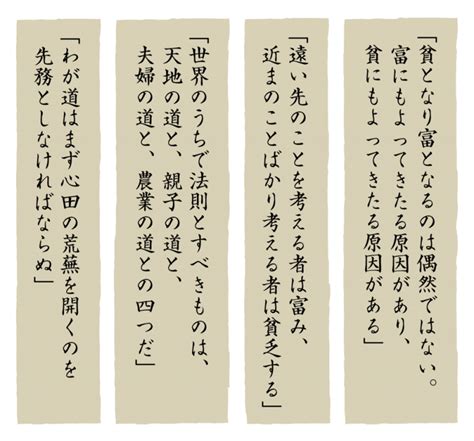 「貧となり富となるのは偶然ではない。
富にもよってきたる原因があり、
貧にもよってきたる原因がある」
「遠い先のことを考える者は富み、
近まのことばかり考える者は貧乏する」
「世界のうちで法則とすべきものは、
天地の道と、親子の道と、
夫婦の道と、農業の道との四つだ」
「わが道はまず心田の荒蕪を開くのを
先務としなければならぬ」